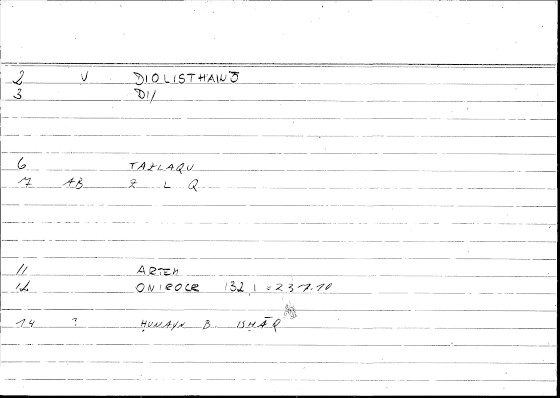 2 V DIOLISTHAINŌ
3 DI/
6 TAZLAQU
7 AB Z L Q
11 ARTEM
12 ONIROCR 132,1 = 237.10
14 ? ḤUNAYN B. ISḤĀQ